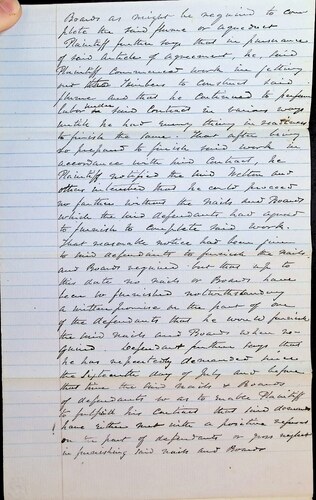 Boards as might be required to com
plete the said flume or aqueduct
Plaintiff further says that in pursuance
of said Articles of agreement, he, said
Plaintiff Commenced work in getting
out Timbers to construct said
flume and that he continued to perform
labor under said Contract in various ways
until he had every thing in readiness
to finish the same. That after being
so prepared to finish said work in
accordance with said Contract, he
Plaintiff notified the said and
others interested that he could proceed
no further without the Nails and Boards
which the said defendants had agreed
to furnish to Complete said work.
That reasonable notice had been given
to said defendants to furnish the Nails
and Boards required but that up to
this date no nails or Boards have
been so furnished notwithstanding
a written promise on the part of one
of the defendants that he would furnish
the said nails and Boards when re-
quired. Defendant further says that
he has repeatedly demanded since
the day of July and before
that time the said Nails & Boards
of defendants so as to enable Plaintiff
to fulfill his Contract that said demands
have either met with a positive refusal
on the part of defendants or gross neglect
in furnishing said nails and Boards